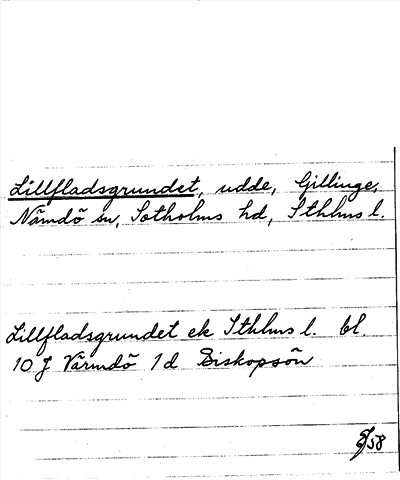 Lillfladsgrundet, udde, Gillinge,
Nämdö sn, Sotholms hd, Sthlms l.
Lillfladsgrundet ek Sthlms l. bl.
10 J Värmdö 1 d Biskopsön
/58